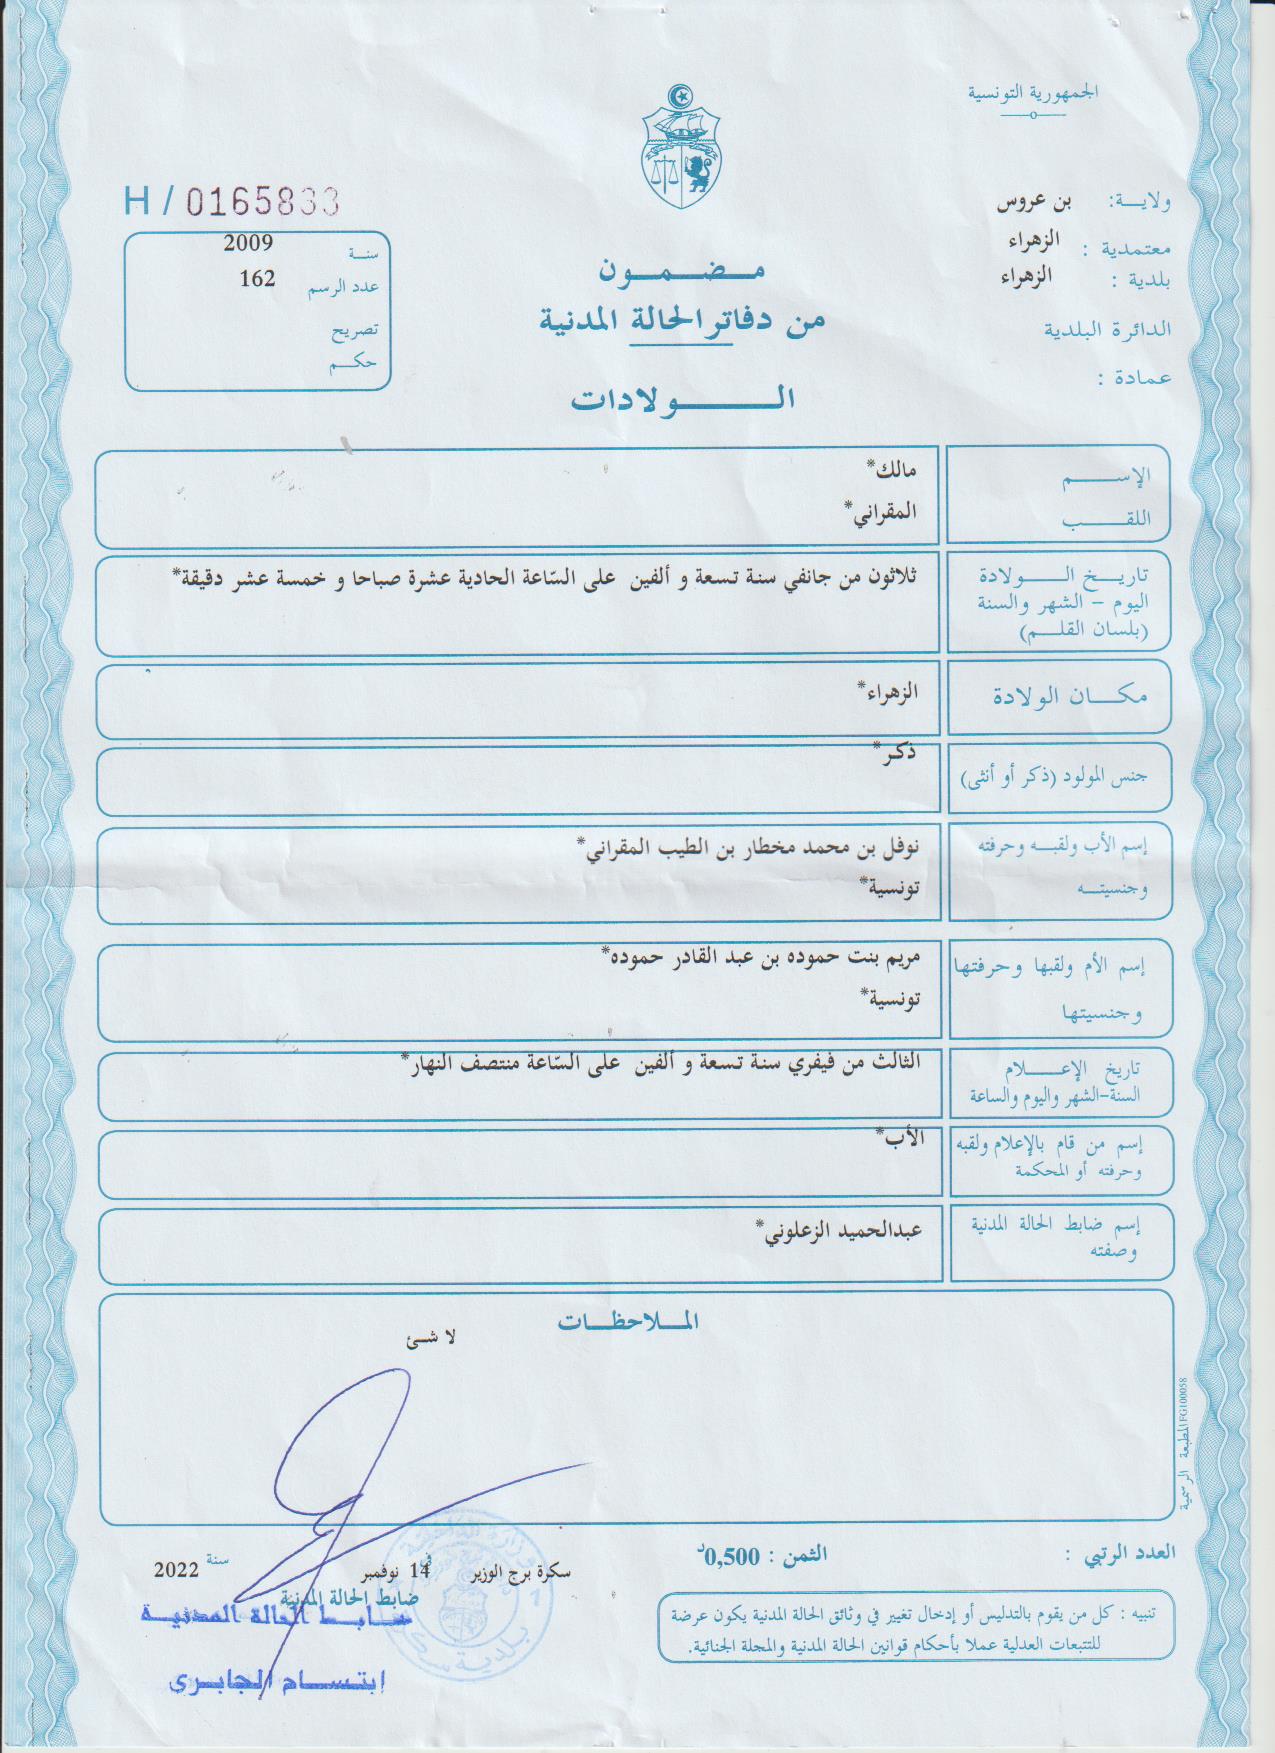 الجمهورية التونسية
ولايـــة: بن عروس
معتمدية : الزهراء
بلدية : الزهراء
الدائرة البلدية
عمادة :
H / 0165833
سنـــة 2009
عدد الرسم 162
تصريح
حكـــم
مـــضـــمـــون
من دفاتر الحالة المدنية
الـــــولادات
الإســـــم مالك*
اللقـــــب المقراني*
تاريـــخ الـــــولادة ثلاثون من جانفي سنة تسعة و ألفين على السّاعة الحادية عشرة صباحا و خمسة عشر دقيقة*
اليوم – الشهر والسنة
(بلسان القلـــم)
مكـــان الولادة الزهراء*
جنس المولود (ذكر أو أنثى) ذكر*
إسم الأب ولقبـــه وحرفته نوفل بن محمد مخطار بن الطيب المقراني*
وجنسيتـــه تونسية*
إسم الأم ولقبها وحرفتها مريم بنت حموده بن عبد القادر حموده*
وجنسيتها تونسية*
تاريخ الإعـــــلام الثالث من فيفري سنة تسعة و ألفين على السّاعة منتصف النهار*
السنة-الشهر واليوم والساعة
إسم من قام بالإعلام ولقبه الأب*
وحرفته أو المحكمة
إسم ضابط الحالة المدنية عبدالحميد الزعلوني*
وصفته
الملاحظـــات
لا شئ
المطبعة الرسمية FG100058
العدد الرتبي :
الثمن : 0,500د
سكرة برج الوزير في 14 نوفمبر سنة 2022
ضابط الحالة المدنية
ضابط الحالة المدنية
ابتسام الجابري
تنبيه : كل من يقوم بالتدليس أو إدخال تغيير في وثائق الحالة المدنية يكون عرضة
للتتبعات العدلية عملا بأحكام قوانين الحالة المدنية والمجلة الجنائية.